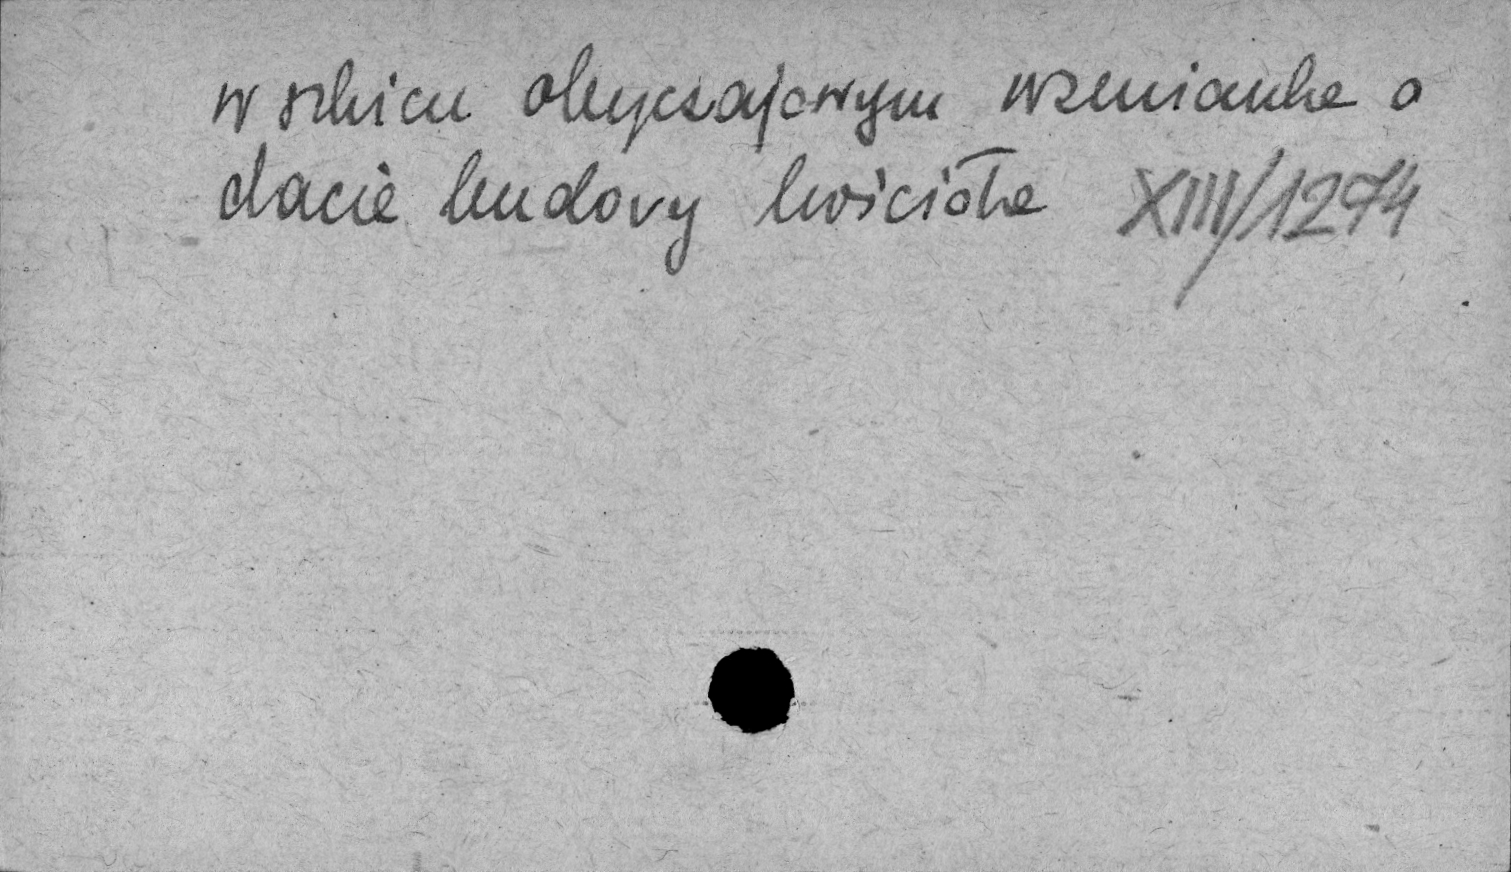 w szkicu obyczajowym wzmianka o
dacie budowy kościoła XIII/1274